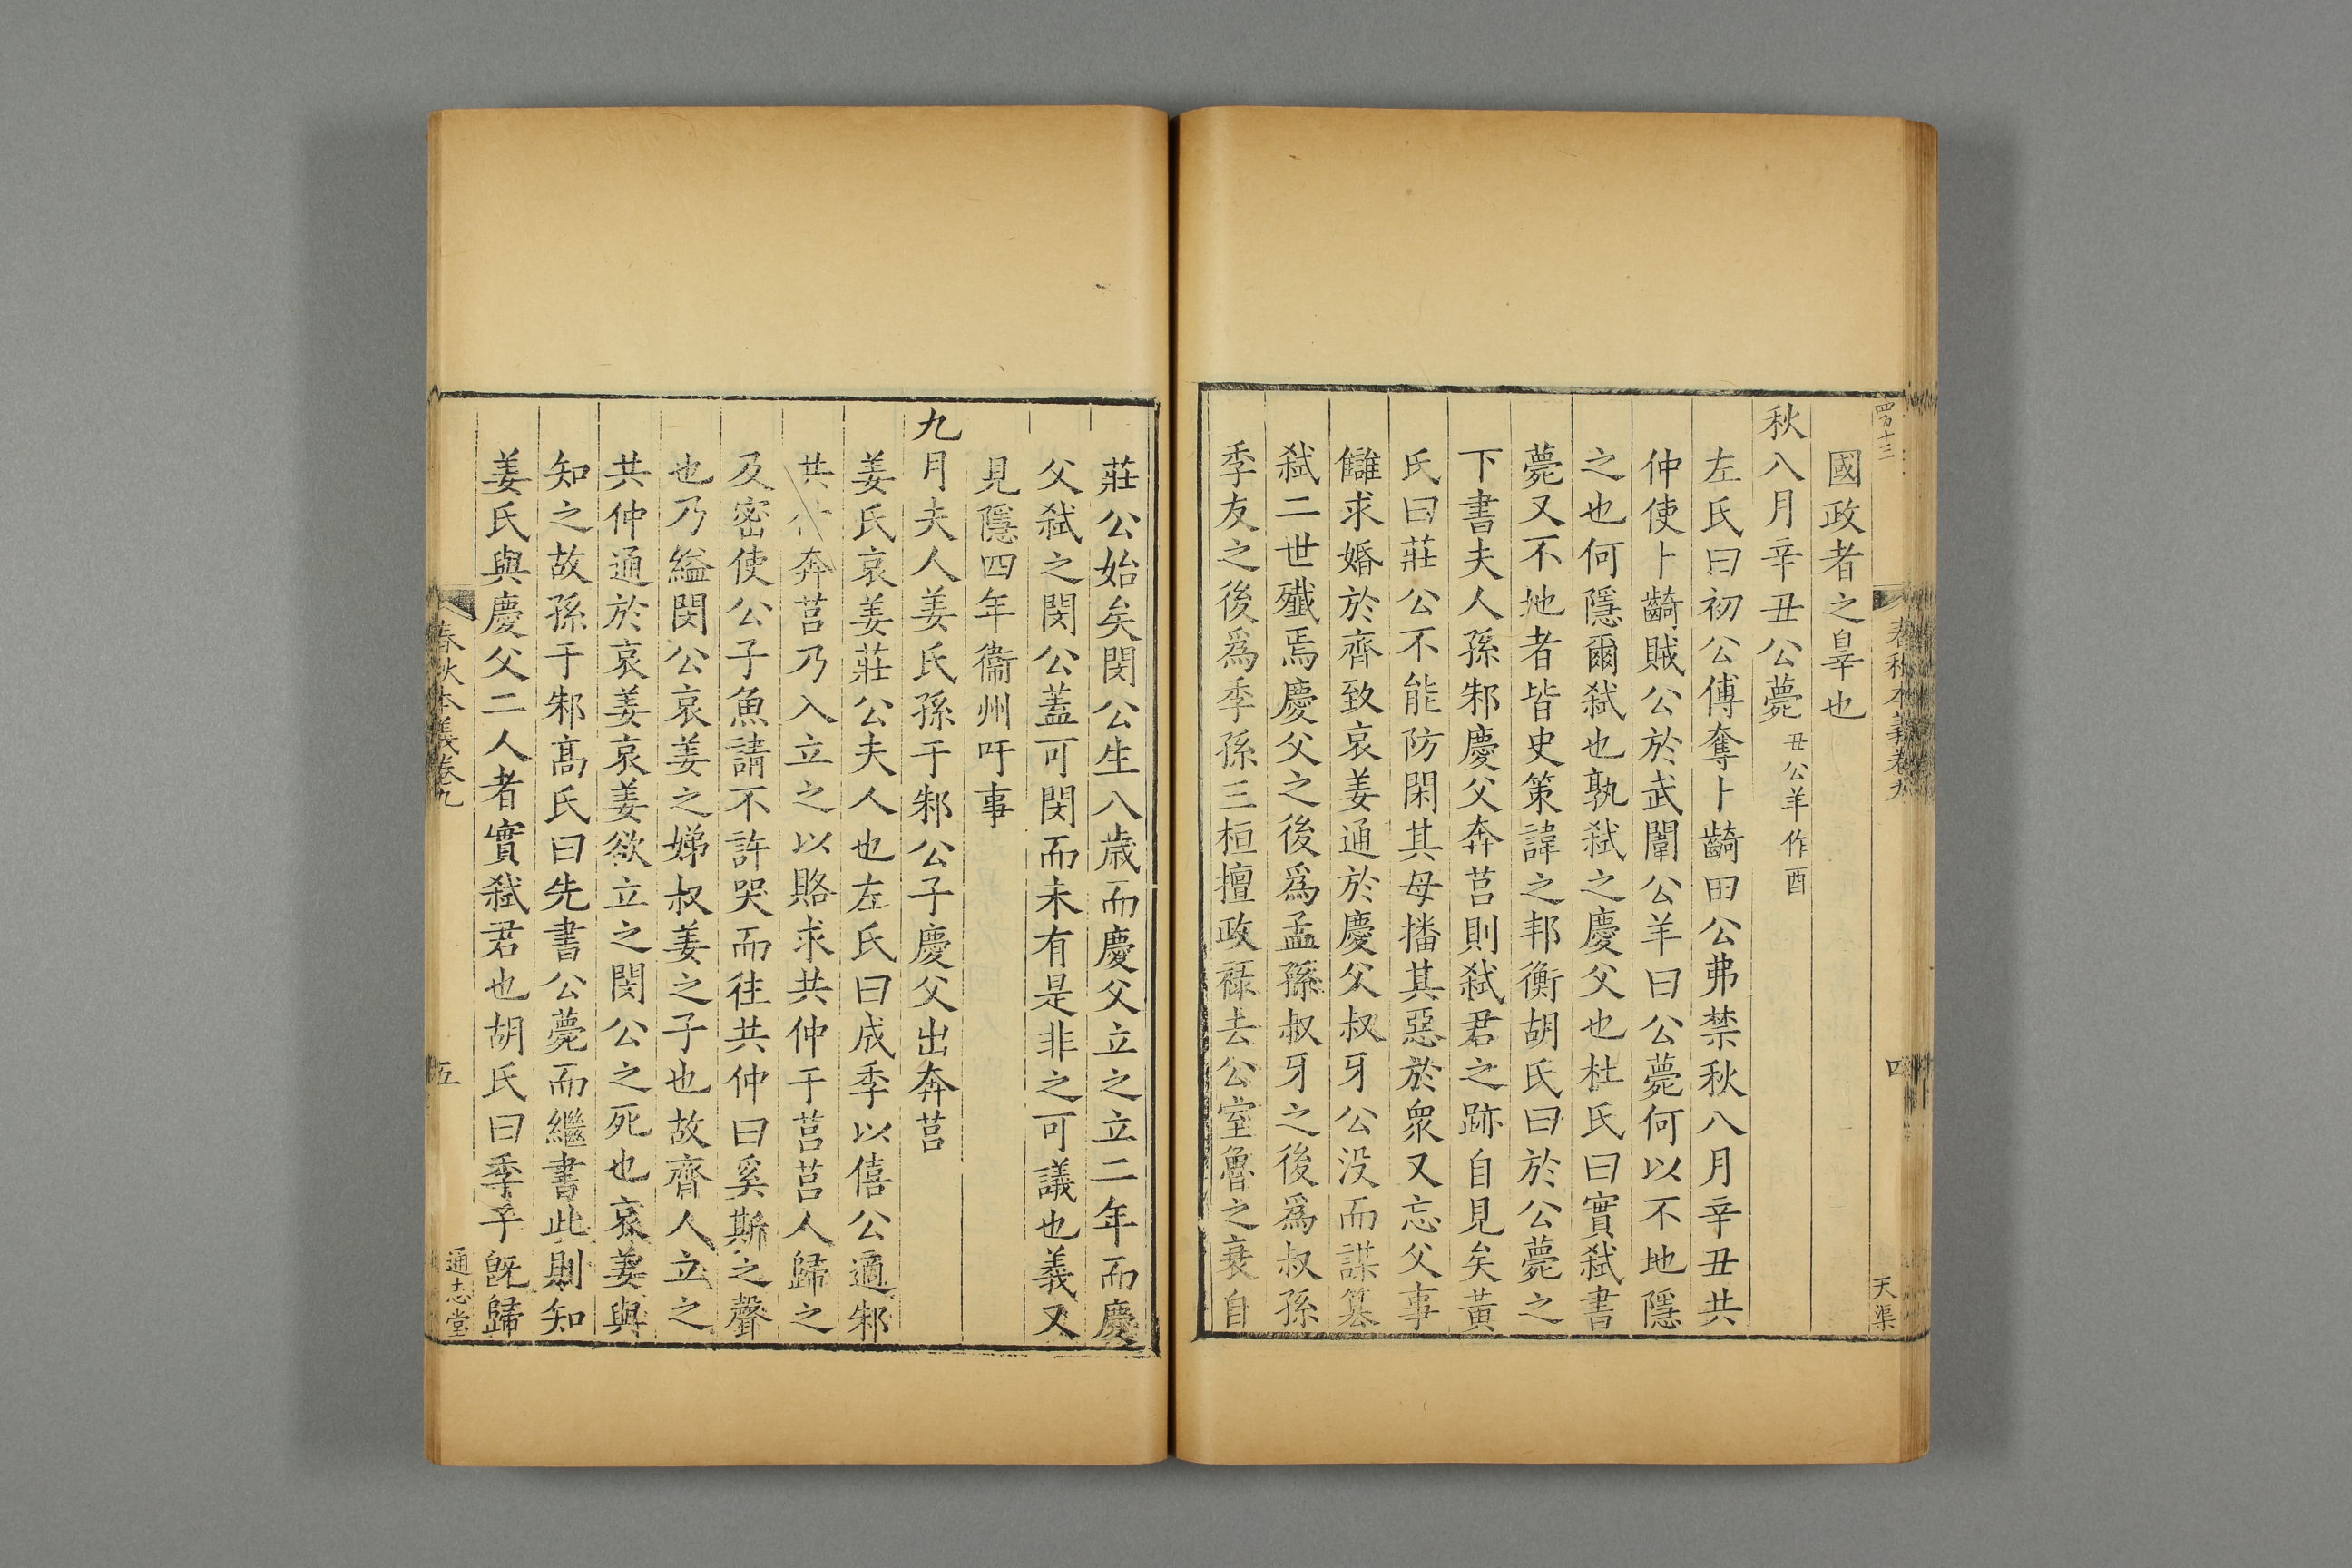 四百十三
春秋本義卷九
四
天渠
國政者之辠也
秋八月辛丑公薨丑公羊作酉
左氏曰初公傅奪卜齮田公弗禁秋八月辛丑共
仲使卜齮賊公於武闈公羊曰公薨何以不地隱
之也何隱爾弑也孰弑之慶父也杜氏曰實弑書
薨又不地者皆史策諱之邦衡胡氏曰於公薨之
下書夫人孫邾慶父奔莒則弑君之跡自見矣黃
氏曰莊公不能防閑其母播其惡於衆又忘父事
讎求婚於齊致哀姜通於慶父叔牙公没而謀篡
弑二世殱焉慶父之後爲孟孫叔牙之後爲叔孫
季友之後爲季孫三桓擅政祿去公室魯之衰自
莊公始矣閔公生八歲而慶父立之立二年而慶
父弑之閔公蓋可閔而未有是非之可議也義又
見隱四年衞州吁事
九月夫人姜氏孫于邾公子慶父出奔莒
姜氏哀姜莊公夫人也左氏曰成季以僖公適邾
共仲奔莒乃入立之以賂求共仲于莒莒人歸之
及密使公子魚請不許哭而往共仲曰奚斯之聲
也乃縊閔公哀姜之娣叔姜之子也故齊人立之
共仲通於哀姜哀姜欲立之閔公之死也哀姜與
知之故孫于邾髙氏曰先書公薨而繼書此則知
姜氏與慶父二人者實弑君也胡氏曰季子旣歸
春秋本義卷九
五
通志堂